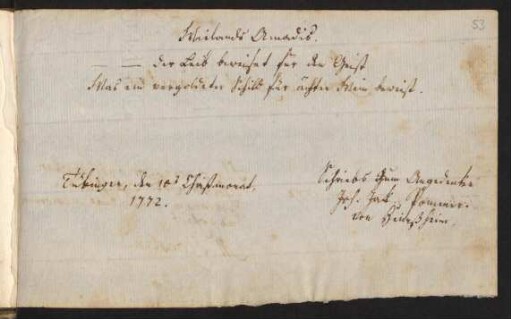 53
Weilands Amadis.
— — der Leib beweiset für den Geist
Was ein vergoldeter Schild für ächten Wein beweist.
Tübingen, den 10t Christmonat.
1772.
Schriebs zum Angedenken
Joh. Jak.
von